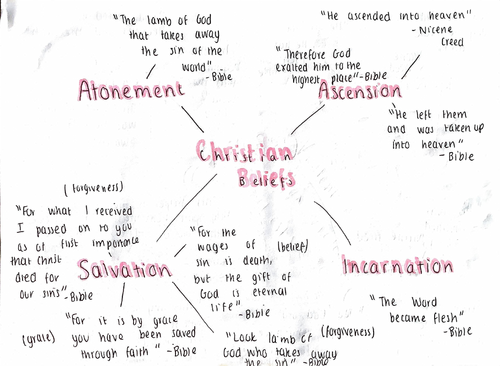 "The lamb of God
that takes away
the sin of the
world"
-Bible
Atonement
"He ascended into heaven"
- Nicene
Creed
"Therefore God
exalted him to the
highest place"-Bible
Ascension
"He left them
and was taken up
into heaven"
- Bible
Christian
Beliefs
(forgiveness)
"For what I received
I passed on to you
as of fist imporance
that Christ
died for
our sins"-Bible
Salvation
"For the
wages of (belief)
sin is death,
but the gift of
God is eternal
life"-Bible
(grace)
"For it is by grace
you have been saved
through faith" -Bible
"Look lamb of (forgiveness)
God who takes away
the sin" -Bible
Incarnation
"The Word
became flesh"
-Bible